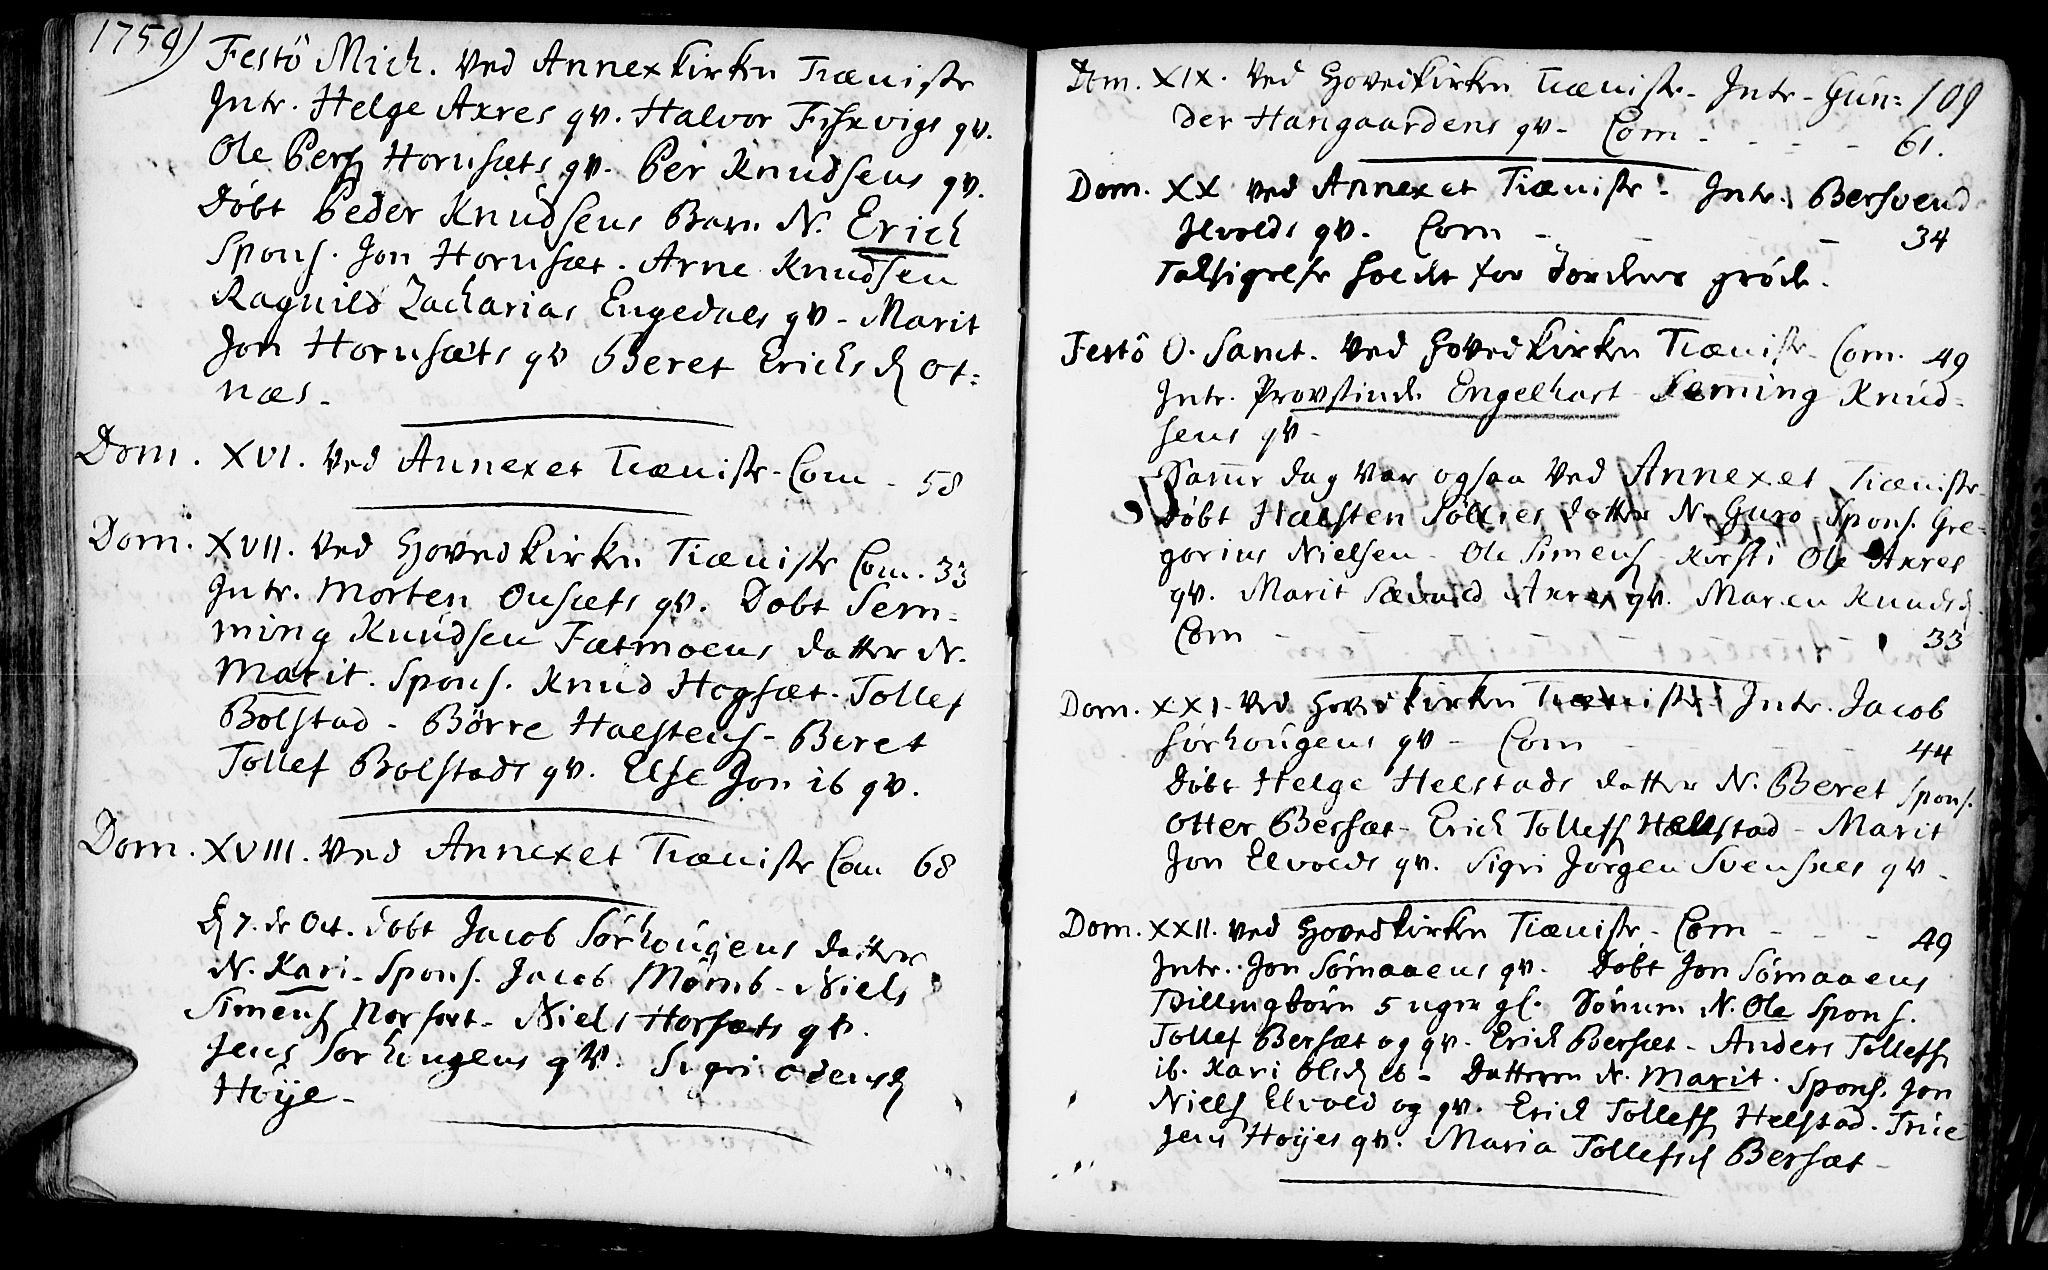 1759)
Festö Mich. Ved Annexkirken Tiæniste
Intr. Helge Axres qv. Halvor Fischvigs qv.
Ole Pers Hornsæts qv. Per Knudsens qv.
Döbt Peder Knudsens Barn N. Erich
Spons. Jon Hornsæt. Arne Knudsen
Ragnild Zacharias Engedals qv - Marit
Jon Hornsæts qv Beret Erichsd Ot=
næs.
Dom. XVI. Ved Annexet Tiæniste - Com - 58
Dom. XVII. Ved Hovedkirken Tiæniste Com. 33
Intr. Morten Onsæts qv. Döbt Sem=
ming Knudsen Fætmoens datter N.
Marit. Spons. Knud Hogsæt. Tollef
Bolstad - Börre Halstens - Beret
Tollef Bolstads qv. Else Jon ib qv.
Dom. XVIII. Ved Annexet Tiæniste Com 68
D 7. de Oct. döbt Jacob Sörhougens datter
N. Kari. Spons. Jacob Momb - Niels
Simens Horsæt - Niels Horsæts qv.
Jens Sörhougens qv. Sigri Odensd
Höije -
109
Dom. XIX. Ved Hovedkirken Tiæniste - Intr - Gun=
der Hangaardens qv - Com - - - - 61.
Dom. XX Ved Annexet Tiæniste - Intr. Bersvend
Ilvolds qv. Com - - - 34
Taksigelse holdt for Jordens gröde.
Festö O. Sanct. Ved Hovedkirken Tiæniste - Com. 49
Intr. Provstinde Engelhart - Semming Knud=
sens qv -
Samme dag var ogsaa Ved Annexet Tiæniste
Döbt Halsten Söllies datter N. Guro Spons. Gre=
gorius Nielsen - Ole Simens - Kirsti Ole Axres
qv. Marit Axres qv. Maren Knudsd.
Com - - - - - 33
Dom. XXI. Ved Hovedkirken Tiæniste Intr. Jacob
Sörhougens qv - Com - - - - 44
Döbt Helge Helstads datter N. Beret Spons.
Otter Bersæt - Erich Tollefs Hallstad - Marit
Jon Elvolds qv. Sigri Jörgen Svensnes qv -
Dom. XXII. Ved Hovedkirken Tiæniste - Com - - - 49
Intr. Jon Sömaaens qv. Döbt Jon Sömaaens
Tvillingbörn 5 uger gl. Sönnen N. Ole Spons.
Tollef Bersæt og qv. Erich Bersæt - Anders Tollefs
ib. Kari Olsd ib - Datteren N. Marit. Spons. Jon
Niels Elvold og qv. Erich Tollefs Helstad. Trüe
Jens Hoijes qv. Maria Tollefsd Bersæt -